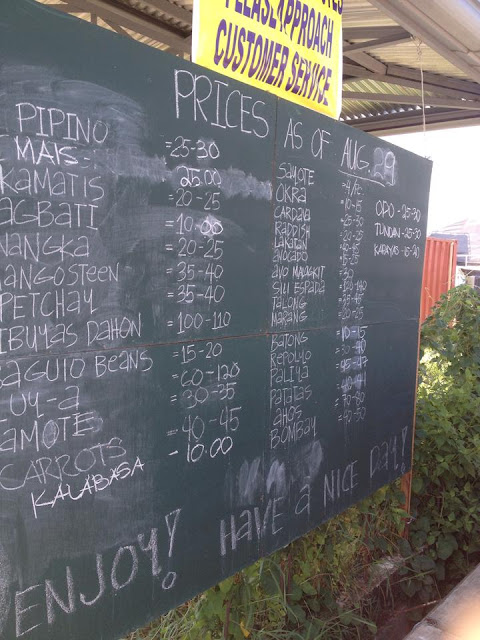 PLEASE APPROACH
CUSTOMER SERVICE
PRICES AS OF AUG. 29
PIPINO =25-30
MAIS 25.00
KAMATIS =20-25
AGBATI =10-
NANGKA =20-25
ANGOSTEEN =35-40
PETCHAY =35-40
IBUYAS DAHON =100-110
BAGUIO BEANS =15-20
UY-A =60-120
AMOTE =30-35
CARROTS =40-45
KALABASA -10.00
SAYOTE =4/PC
OKRA =10-15
CARDAVA =25-30
RADDISH
LAKATAN
AVOCADO =15-25
AYO MALAGKIT =30
SILI ESPADA
TALONG =35-45
MARANG =20-25
BATONG =10-15
REPOLYO
PALIYA
PATATAS
AHOS =70-80
BOMBAY =40-50
ODO -25-30
TUNDAN -25-30
KARNYAS -15-20
ENJOY! HAVE A NICE DAY!